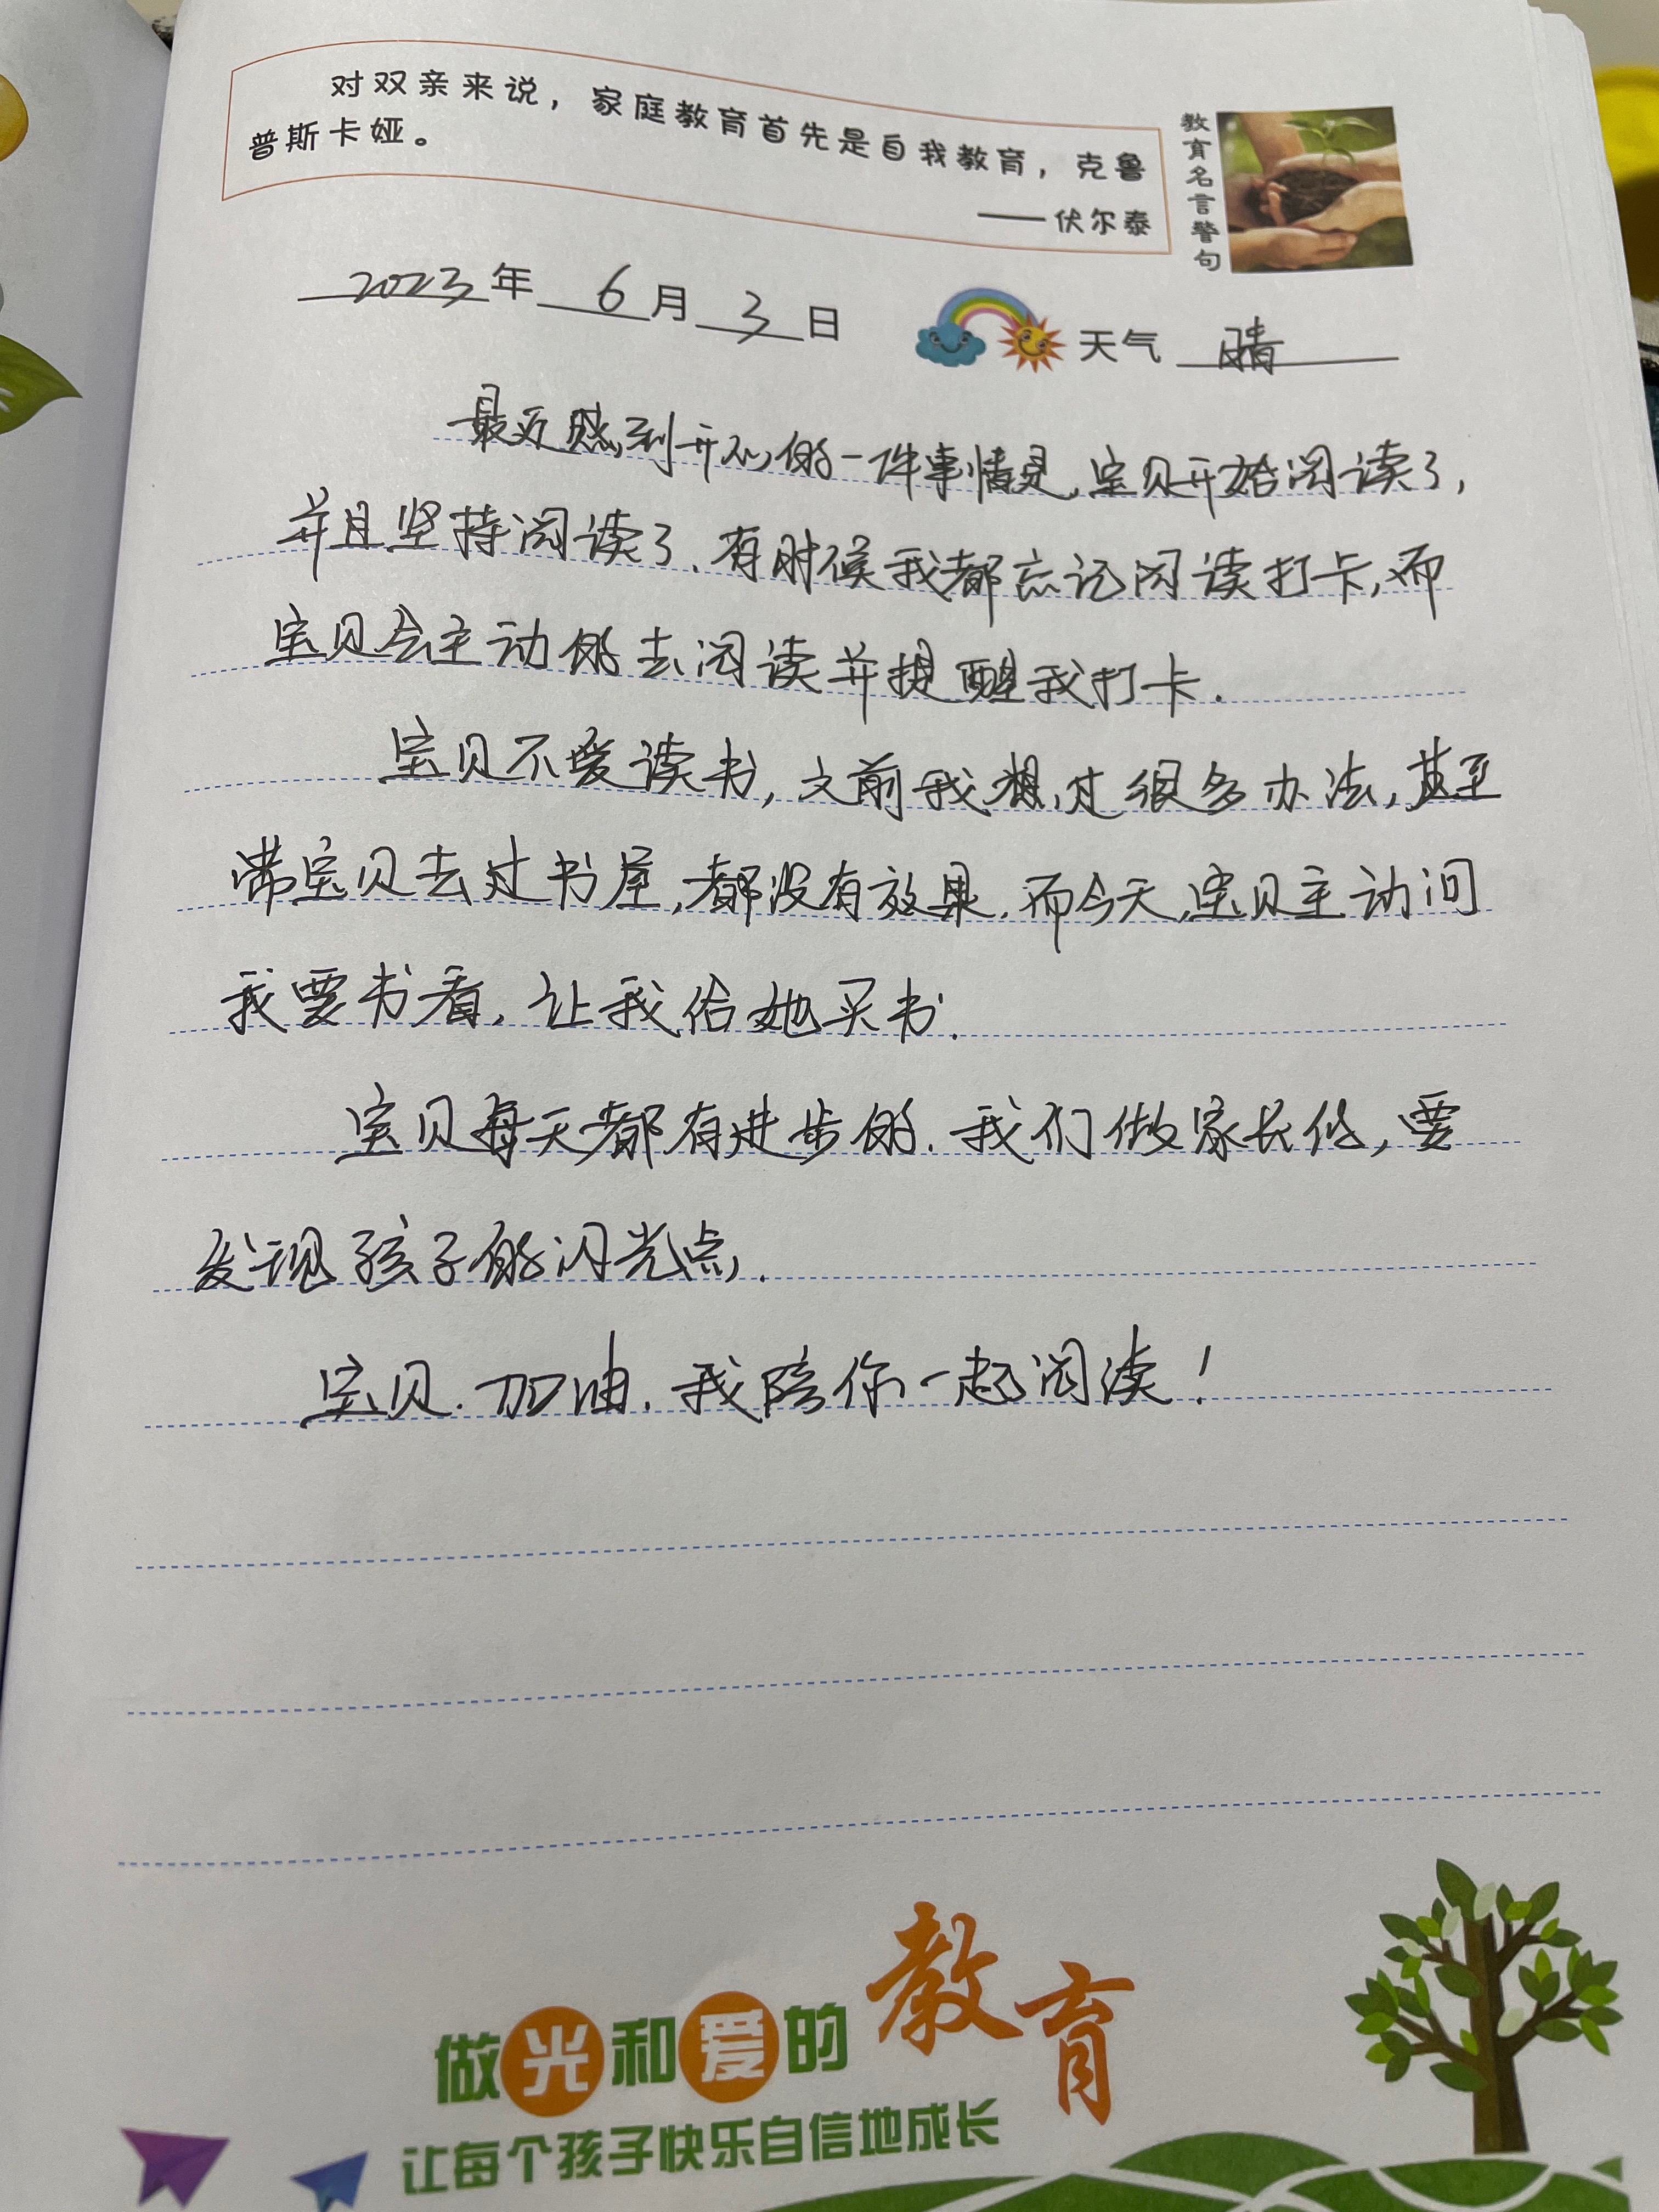 对双亲来说，家庭教育首先是自我教育，克鲁
普斯卡娅。
——伏尔泰
教育名言警句
2023年6月3日
天气 晴
最近感到开心的一件事情是,宝贝开始阅读了,
并且坚持阅读了.有时候我都忘记阅读打卡,而
宝贝会主动的去阅读并提醒我打卡.
宝贝不爱读书,之前我想过很多办法,甚至
带宝贝去过书屋,都没有效果.而今天,宝贝主动问
我要书看,让我给她买书.
宝贝每天都有进步的.我们做家长的,要
发现孩子的闪光点.
宝贝.加油.我陪你一起阅读!
做光和爱的教育
让每个孩子快乐自信地成长